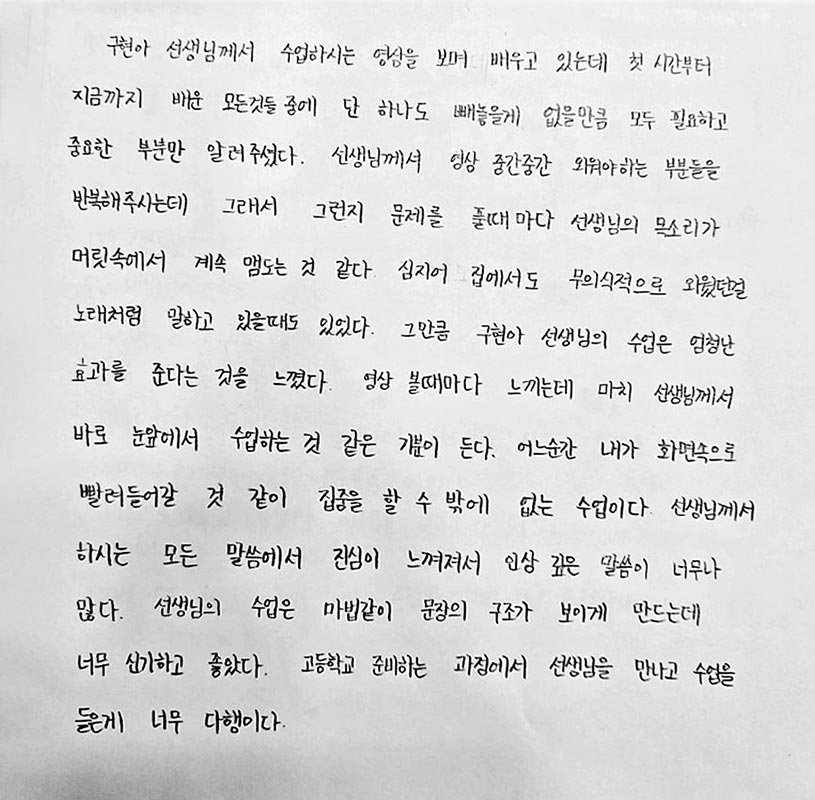 구현아 선생님께서 수업하시는 영상을 보며 배우고 있는데 첫 시간부터
지금까지 배운 모든것들 중에 단 하나도 빼놓을게 없을만큼 모두 필요하고
중요한 부분만 알려주셨다. 선생님께서 영상 중간중간 외워야하는 부분들을
반복해주시는데 그래서 그런지 문제를 풀때마다 선생님의 목소리가
머릿속에서 계속 맴도는 것 같다. 심지어 집에서도 무의식적으로 외웠던걸
노래처럼 말하고 있을때도 있었다. 그만큼 구현아 선생님의 수업은 엄청난
효과를 준다는 것을 느꼈다. 영상 볼때마다 느끼는데 마치 선생님께서
바로 눈앞에서 수업하는 것 같은 기분이 든다. 어느순간 내가 화면속으로
빨려들어갈 것 같이 집중을 할 수 밖에 없는 수업이다. 선생님께서
하시는 모든 말씀에서 진심이 느껴져서 인상 깊은 말씀이 너무나
많다. 선생님의 수업은 마법같이 문장의 구조가 보이게 만드는데
너무 신기하고 좋았다. 고등학교 준비하는 과정에서 선생님을 만나고 수업을
들은게 너무 다행이다.